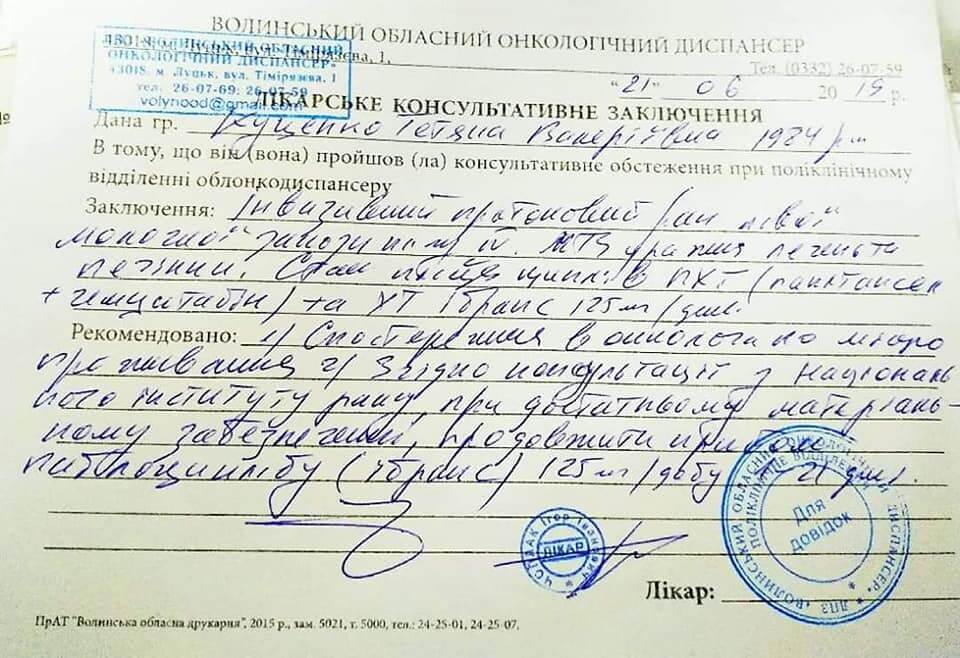 ВОЛИНСЬКИЙ ОБЛАСНИЙ ОНКОЛОГІЧНИЙ ДИСПАНСЕР
43018, м. Луцьк, вул. Тімірязєва, 1,
Тел. (0332) 26-07-59
ЛПЗ «ВОЛИНСЬКИЙ ОБЛАСНИЙ
ОНКОЛОГІЧНИЙ ДИСПАНСЕР»
43018, м. Луцьк, вул. Тімірязєва, 1
тел. 26-07-69; 26-07-59
volynood@gmail.com
"21" 06 2019 р.
ЛІКАРСЬКЕ КОНСУЛЬТАТИВНЕ ЗАКЛЮЧЕННЯ
Дана гр. Куценко Тетяна Валеріївна 1984 р.н
В тому, що він (вона) пройшов (ла) консультативне обстеження при поліклінічному
відділенні облонкодиспансеру
Заключення: Інвазивний протоковий рак лівої
молочної залози IV. МТS ураження легень та
печінки. Стан після ПХТ (паклітаксел
+ гемцитабін) та Ібранс 125 мг/день.
Рекомендовано: 1) Спостереження в онколога по місцю
проживання 2) Згідно консультації з Національ
ного інституту раку, при достатньому матеріаль-
ному забезпеченні, продовжити прийом
палбоциклібу (Ібранс) 125 мг/добу 21 день.
ЧОПЛАК Ігор Іванович
ЛІКАР
ЛПЗ «ВОЛИНСЬКИЙ ОБЛАСНИЙ ОНКОЛОГІЧНИЙ ДИСПАНСЕР»
ПОЛІКЛІНІЧНЕ ВІДДІЛЕННЯ
Для
довідок
Лікар:
ПрАТ "Волинська обласна друкарня", 2015 р., зам. 5021, т. 5000, тел.: 24-25-01, 24-25-07.